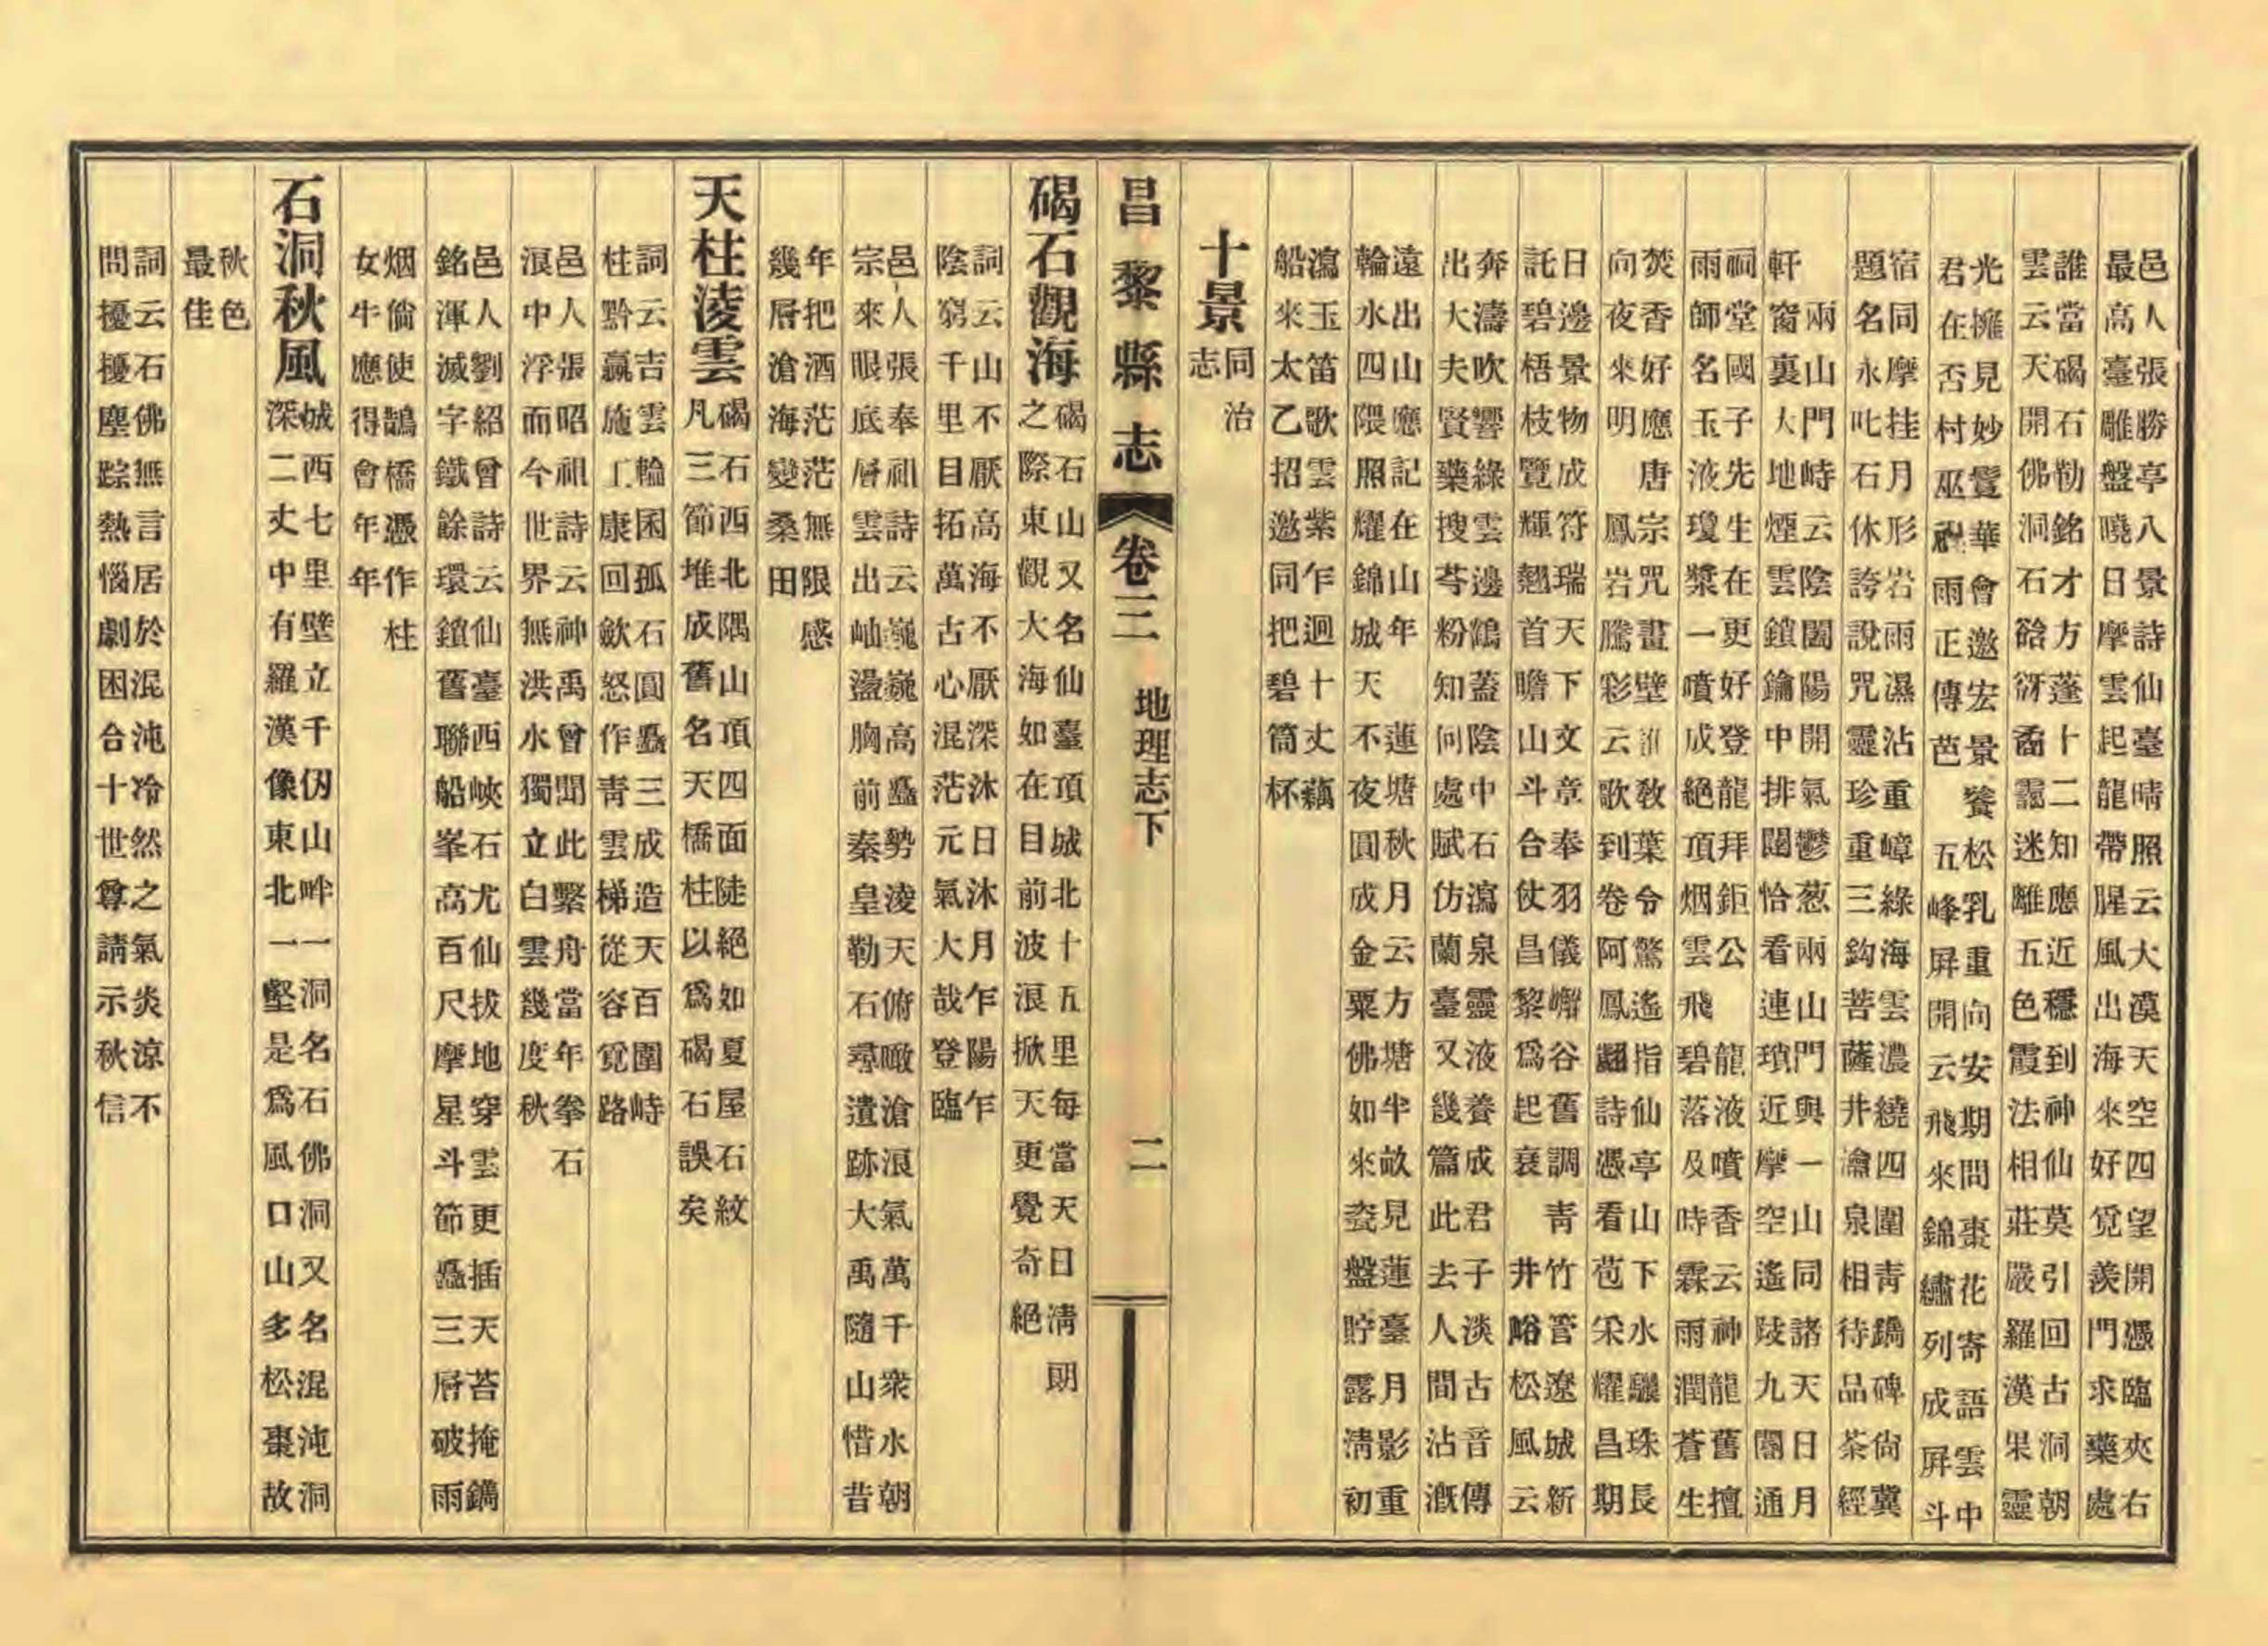 邑人張勝亭八景詩仙臺晴照云大漠天空四望開憑臨夾右
最高臺雕盤曉日摩雲起龍帶腥風出海來好覓羨門求藥處
誰當碣石勒銘才方蓬十二知應近穩到神仙莫引回古洞朝
雲云天開佛洞石谽谺矞靄迷離五色霞法相莊嚴羅漢果靈
光擁見妙鬘華會邀宏景饗松乳重向安期問棗花寄語雲中
君在否村巫雨正傳芭五峰屏開云飛來錦繡列成屏斗
宿同摩挂月形岩雨濕沾重嶂綠海雲濃繞四圍靑鐫碑尙冀
題名永叱石休誇說咒靈珍重三鈎菩薩井瀹泉相待品茶經
兩山門峙云陰闔陽開氣鬱葱兩山門與一山同諸天日月
軒窗裏大地煙雲鎖鑰中排闥恰看連瑣近摩空遙陟九關通
祠堂國子先生在更好登龍拜鉅公龍液噴香云神龍舊擅
雨師名玉液瓊漿一噴成絕頂烟雲飛碧落及時霖雨潤蒼生
焚香好應唐宗咒畫壁誰敎葉令驚遙指仙亭山下水驪珠長
向夜來明鳳岩騰彩云歌到卷阿鳳翽詩憑看苞采耀昌期
日邊景物成符瑞天下文章奉羽儀嶰谷舊調靑竹管遼城新
託碧梧枝覽輝翹首瞻山斗合仗昌黎爲起衰井峪松風云
奔濤吹響綠雲邊鶴蓋陰中石瀉泉靈液養成君子淡古音傳
出大夫賢藥搜苓粉知何處賦仿蘭臺又幾篇此去人間沾漑
遠出山應記在山年蓮塘秋月云方塘半畝見蓮臺月影重
輪水四隈照耀錦城天不夜圓成金粟佛如來瓷盤貯露淸初
瀉玉笛歌雲紫乍迴十丈藕
船來太乙招邀同把碧筒杯
十景同治
志
昌黎縣志 卷三 地理志下 二
碣石觀海碣石山又名仙臺頂城北十五里每當天日淸朗
之際東觀大海如在目前波浪掀天更覺奇絕
詞云山不厭高海不厭深沐日沐月乍陽乍
陰窮千里目拓萬古心混茫元氣大哉登臨
邑人張奉祖詩云巍巍高矗勢淩天俯瞰滄浪氣萬千衆水朝
宗來眼底層雲出岫盪胸前秦皇勒石尋遺跡大禹隨山惜昔
年把酒茫茫無限感
幾層滄海變桑田
天柱淩雲碣石西北隅山頂四面陡絕如夏屋石紋
凡三節堆成舊名天橋柱以爲碣石誤矣
詞云吉雲輪囷孤石圓矗三成造天百圍峙
柱黔贏施工康回歛怒作靑雲梯從容覓路
邑人張昭祖詩云神禹曾聞此繫舟當年拳石
浪中浮而今世界無洪水獨立白雲幾度秋
邑人劉紹曾詩云仙臺西峽石尤仙拔地穿雲更插天苔掩鐫
銘渾滅字鐵餘環鎖舊聯船峯高百尺摩星斗節矗三層破雨
烟倘使鵲橋憑作柱
女牛應得會年年
石洞秋風城西七里壁立千仞山畔一洞名石佛洞又名混沌洞
深二丈中有羅漢像東北一壑是爲風口山多松棗故
秋色
最佳
詞云石佛無言居於混沌冷然之氣炎涼不
問擾擾塵踪熱惱劇困合十世尊請示秋信